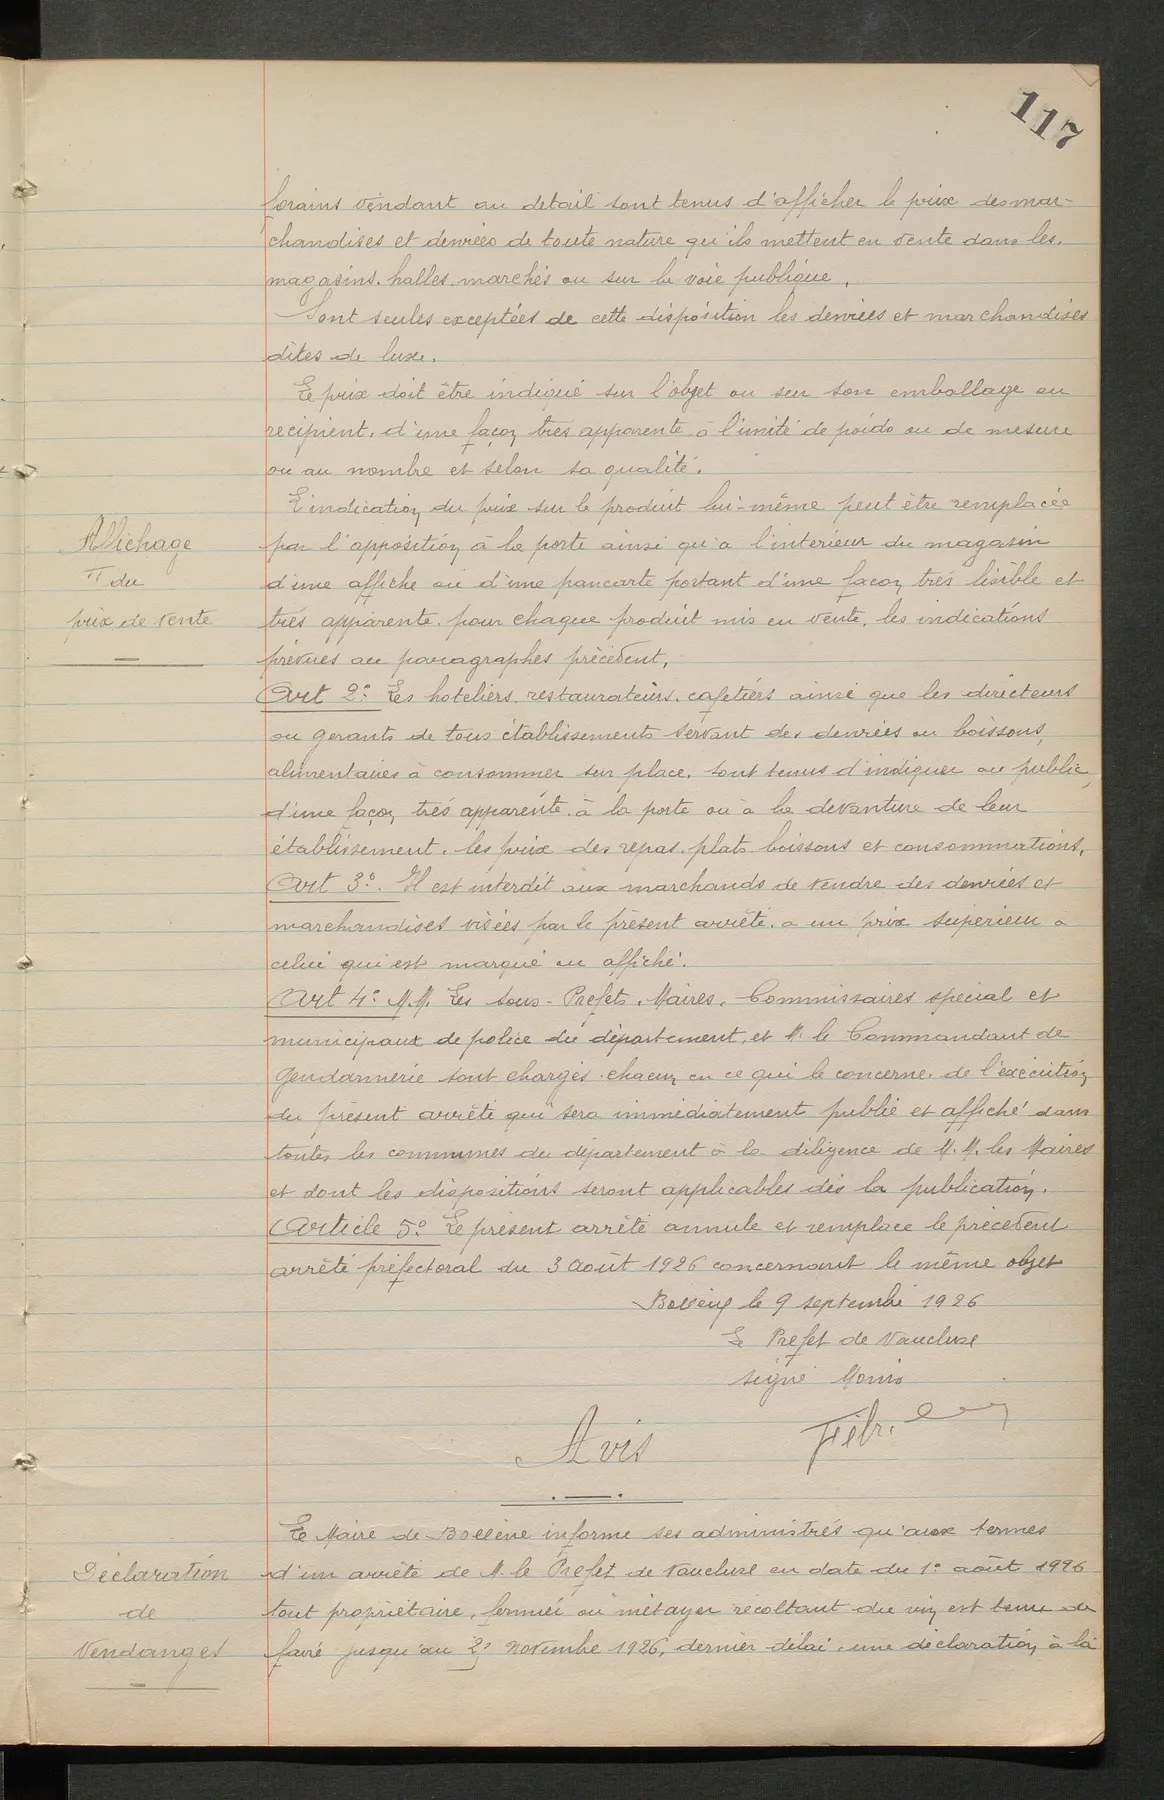 117
forains vendant au detail sont tenus d'afficher le prix des mar-
chandises et denrées de toute nature qu'ils mettent en vente dans les
magasins. halles. marchés ou sur la voie publique.
Sont seules exceptées de cette disposition les denrées et marchandises
dites de luxe.
Le prix doit être indiqué sur l'objet ou sur son emballage ou
recipient. d'une façon très apparente à l'unité de poids ou de mesure
ou au nombre et selon sa qualité.
L'indication du prix sur le produit lui-même peut être remplacée
Affichage
du
prix de vente
par l'apposition à la porte ainsi qu'a l'interieur du magasin
d'une affiche ou d'une pancarte portant d'une façon très lisible et
très apparente. pour chaque produit mis en vente, les indications
prévues au paragraphes précédent.
Art 2° Les hoteliers. restaurateurs. cafetiers ainsi que les directeurs
ou gerants de tous établissements servant des denrées ou boissons
alimentaires à consommer sur place. sont tenus d'indiquer au public,
d'une façon très apparente. à la porte ou à la devanture de leur
établissement. les prix des repas. plats. boissons et consommations.
Art 3° Il est interdit aux marchands de vendre des denrées et
marchandises visées par le présent arrêté. a un prix supérieur a
celui qui est marqué ou affiché.
Art 4° M.M. Les Sous-Préfets. Maires. Commissaires spécial et
municipaux de police du département. et M. le Commandant de
Gendarmerie sont chargés. chacun en ce qui le concerne. de l'exécution
du présent arrêté qui sera immédiatement publié et affiché dans
toutes les communes du département à la diligence de M.M. les Maires
et dont les dispositions seront applicables dès la publication.
Article 5° Le présent arrêté annule et remplace le précédent
arrêté préfectoral du 3 août 1926 concernant le même objet
le 9 septembre 1926
Le Préfet de Vaucluse
signé Monis
Avis
Le Maire de Bollène informe ses administrés qu'aux termes
Déclaration
de
Vendanges
d'un arrêté de M. le Préfet de Vaucluse en date du 1° août 1926
tout propriétaire, fermier ou métayer récoltant du vin est tenu de
faire jusqu'au novembre 1926, dernier délai. une déclaration à la